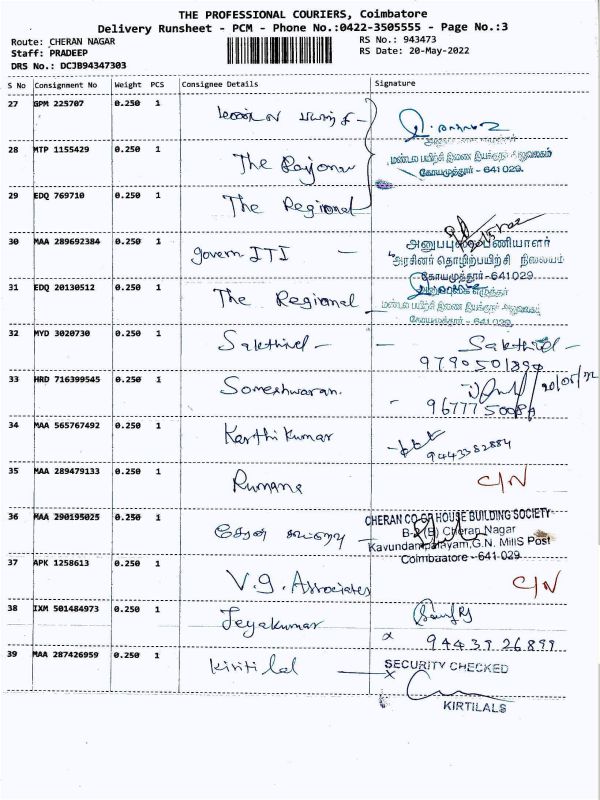 THE PROFESSIONAL COURIERS, Coimbatore
Delivery Runsheet - PCM - Phone No.:0422-3505555 - Page No.:3
Route: CHERAN NAGAR RS No.: 943473
Staff: PRADEEP RS Date: 20-May-2022
DRS No.: DCJB94347303
S No Consignment No Weight PCS Consignee Details Signature
27 GPM 225707 0.250 1
28 MTP 1155429 0.250 1 The
மண்டல பயிற்சி இணை இயக்குநர் அலுவலகம்
கோயமுத்தூர் - 641 029.
29 EDQ 769710 0.250 1 The Regional
30 MAA 289692384 0.250 1 Govern ITI -
அரசினர் தொழிற்பயிற்சி நிலையம்
கோயமுத்தூர்-641029.
31 EDQ 20130512 0.250 1 The Regional
மண்டல பயிற்சி இணை இயக்குநர் அலுவலகம்
கோயமுத்தூர் - 641 029.
32 MYD 3020730 0.250 1 Sakthivel - - Sakthivel -
9790501890
33 HRD 716399545 0.250 1 Someshwaran. 20/05/22
34 MAA 565767492 0.250 1 Karthi Kumar
9443382884
35 MAA 289479133 0.250 1 Rumana C/N
36 MAA 290195025 0.250 1
CHERAN CO-OP HOUSE BUILDING SOCIETY
Cheran Nagar
Kavundampalayam, G.N. Mills Post
Coimbaatore - 641-029
37 APK 1258613 0.250 1 V.G. Associates C/N
38 IXM 501484973 0.250 1 Jeyakumar
94439 26899
39 MAA 287426959 0.250 1 Kiriti lal
SECURITY CHECKED
x
KIRTILALS